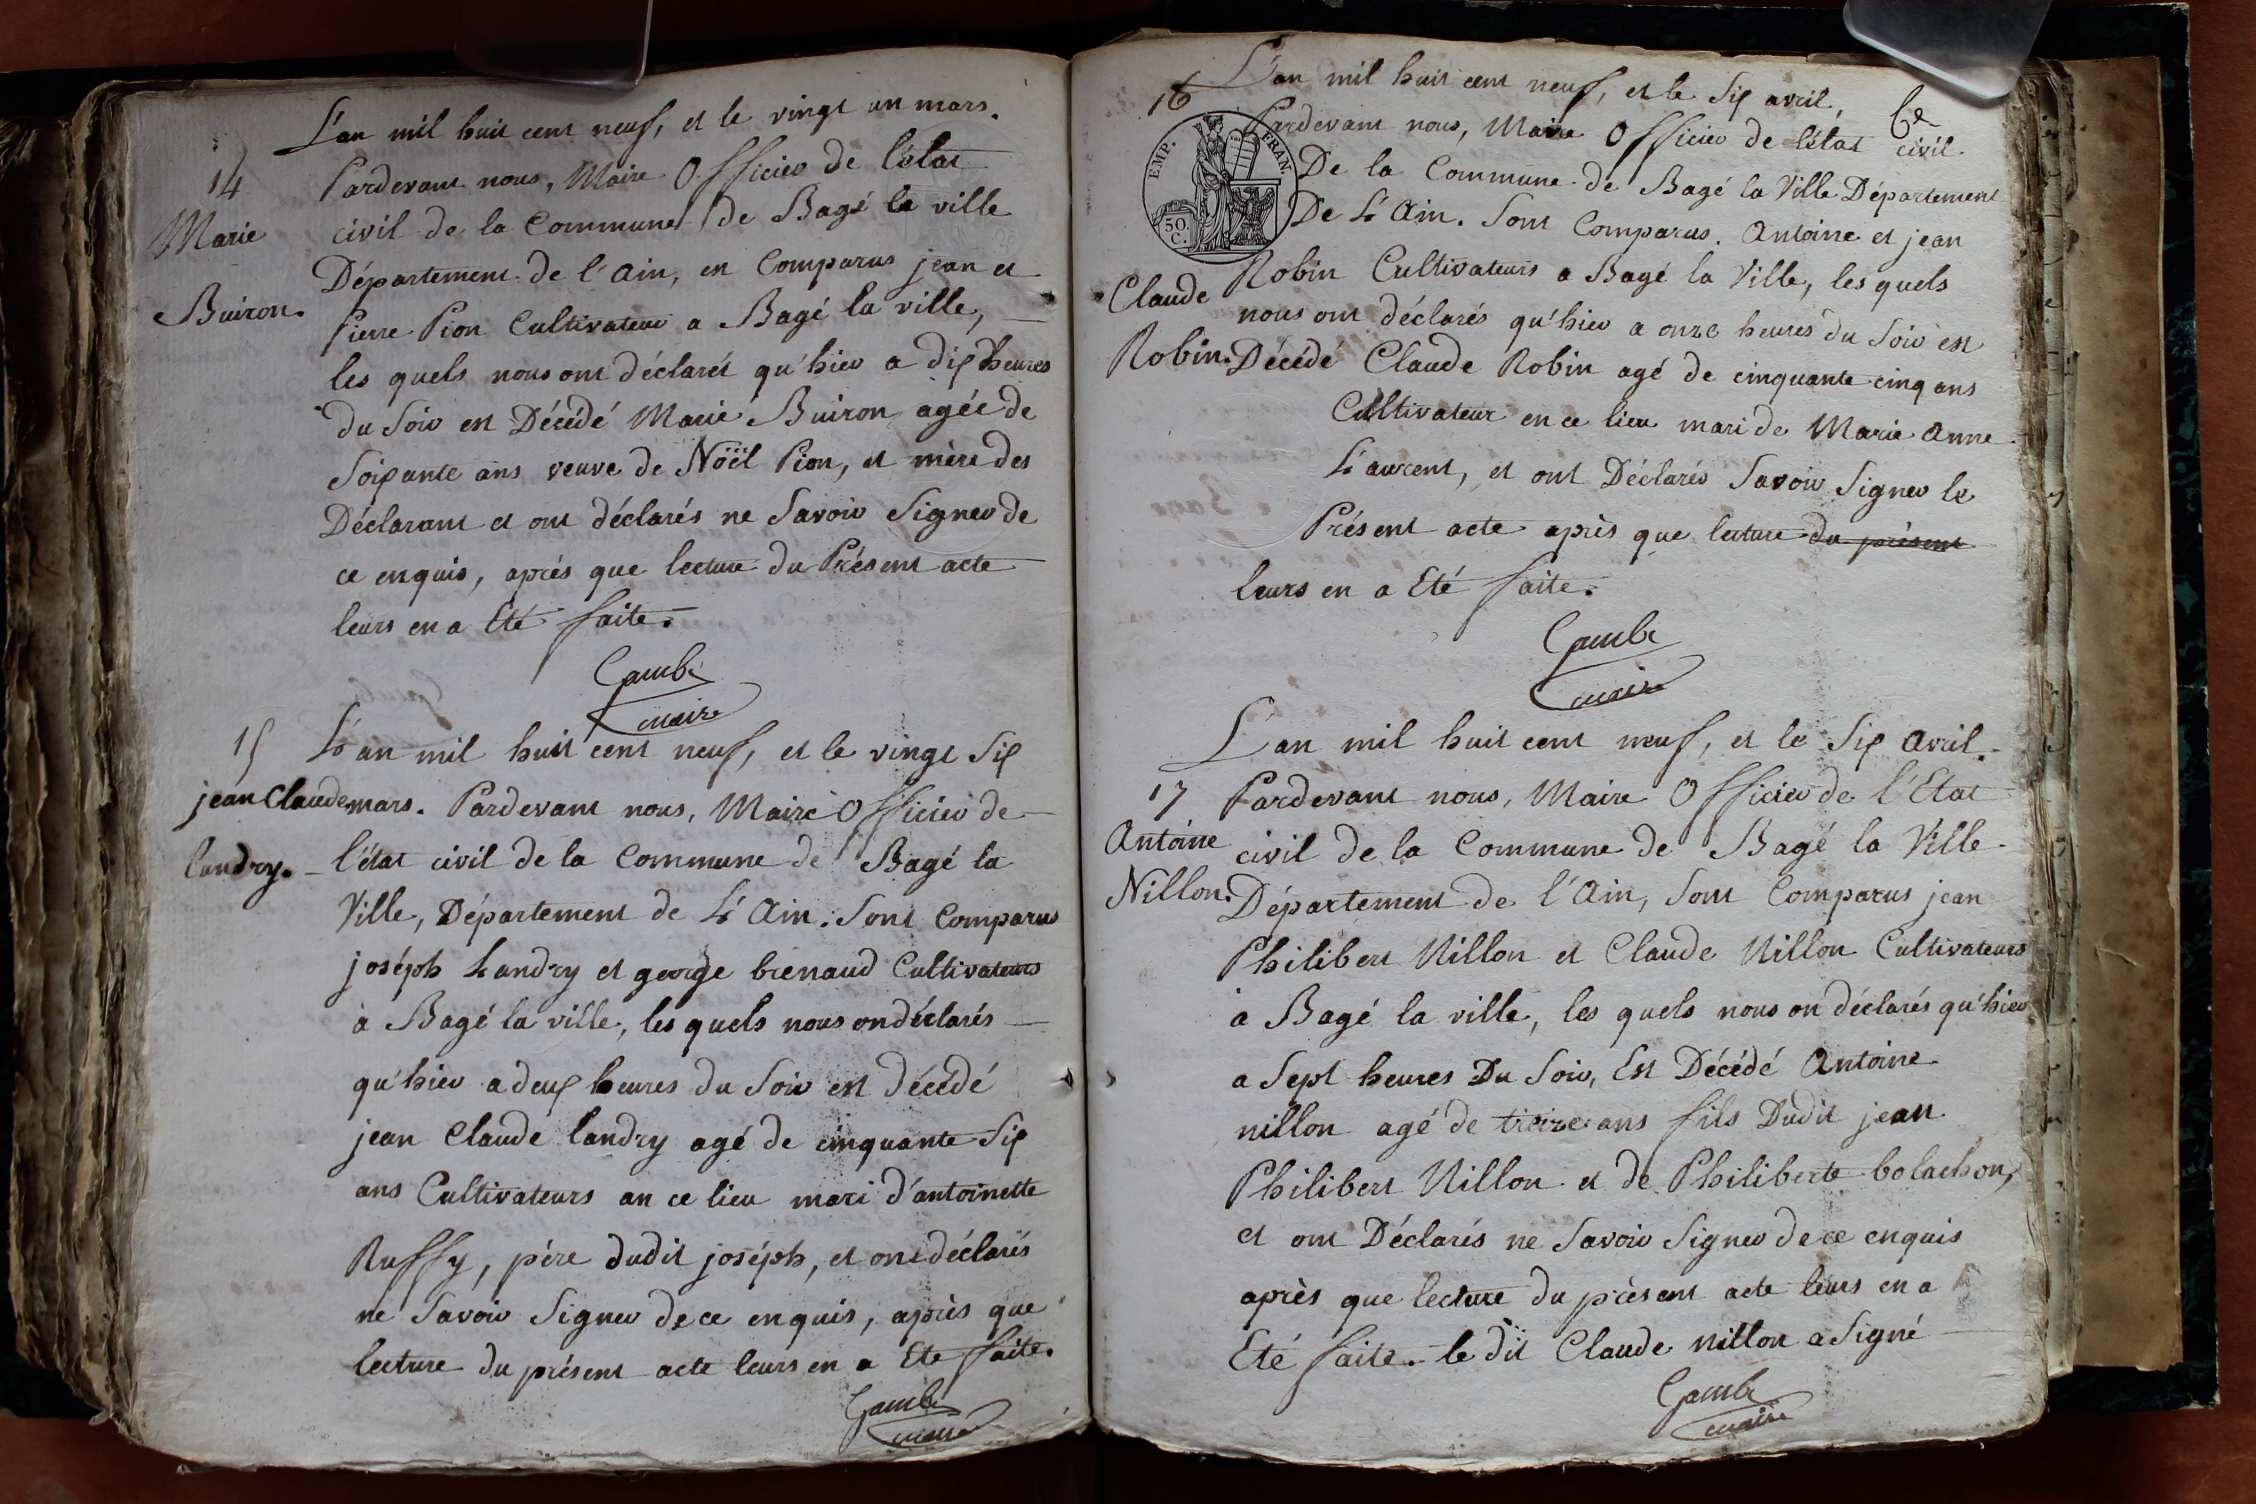 L'an mil huit cent neuf, et le vingt un mars.
14
Pardevant nous, Maire Officier de l'état
Marie
civil de la Commune de Bagé la ville
Département de l'Ain, en Comparus jean et
Buiron.
Pierre Pion Cultivateur a Bagé la ville,
les quels nous ont déclarés qu'hier a dix heures
du Soir est Décédé Marie Buiron agée de
Soixante ans veuve de Nöël Pion, et mère des
Déclarant et ont déclarés ne Savoir Signer de
ce enquis, après que lecture du Présent acte
leurs en a Eté faite.
Gambe
maire
15
L'an mil huit cent neuf, et le vingt Six
jean Claude
mars. Pardevant nous, Maire Officier de
landry.
l'état civil de la Commune de Bagé la
Ville, Département de L'Ain. Sont Comparus
joséph Landry et george brenaud Cultivateurs
à Bagé la ville, les quels nous on déclarés
qu'hier a deux heures du Soir est décédé
jean Claude landry agé de cinquante Six
ans Cultivateurs an ce lieu mari d'antoinette
Ruffy, père dudit joséph, et ont déclarés
ne Savoir Signer de ce enquis, après que
lecture du présent acte leurs en a Eté faite.
Gambe
maire
16
L'an mil huit cent neuf, et le Six avril,
6e
Pardevant nous, Maire Officier de l'état civil
EMP. FRAN.
50. C.
De la Commune de Bagé la Ville Département
De L'Ain. Sont Comparus. Antoine et jean
Claude
Robin Cultivateurs a Bagé la Ville, les quels
nous ont déclarés qu'hier a onze heures du Soir est
Robin.
Décédé Claude Robin agé de cinquante cinq ans
Cultivateur en ce lieu mari de Marie Anne
Laurent, et ont Déclarés Savoir Signer le
Présent acte après que lecture du présent
leurs en a Eté faite.
Gambe
maire
L'an mil huit cent neuf, et le Six Avril.
17
Pardevant nous, Maire Officier de l'Etat
Antoine
civil de la Commune de Bagé la Ville
Nillon.
Département de l'Ain, Sont Comparus jean
Philibert Nillon et Claude Nillon Cultivateurs
à Bagé la ville, les quels nous on déclarés qu'hier
a Sept heures Du Soir, Est Décédé Antoine
nillon agé de treize ans fils Dudit jean
Philibert Nillon et de Philiberte bolachon,
et ont Déclarés ne Savoir Signer de ce enquis
après que lecture du présent acte leurs en a
Eté faite. le dit Claude nillon a Signé
Gambe
maire